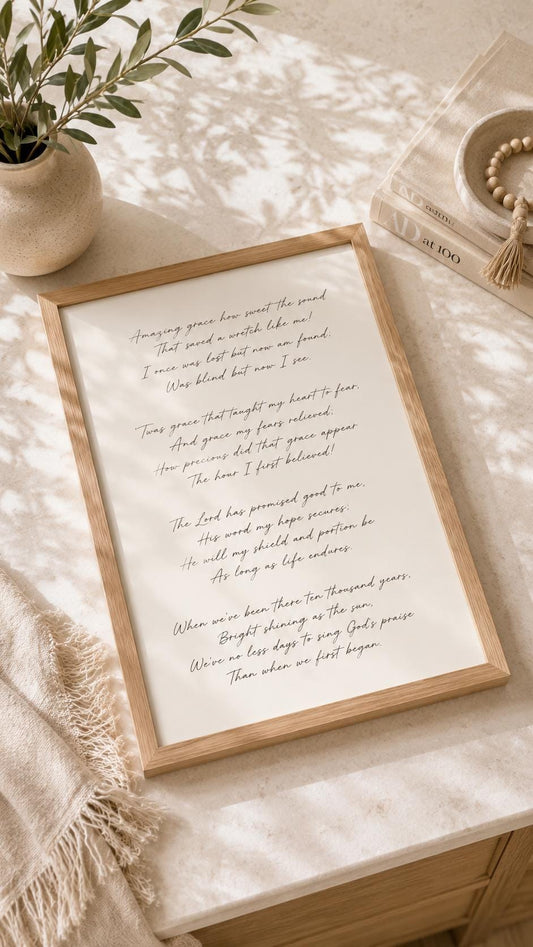 Amazing grace how sweet the sound
That saved a wretch like me!
I once was lost but now am found,
Was blind but now I see.
'Twas grace that taught my heart to fear,
And grace my fears relieved;
How precious did that grace appear
The hour I first believed!
The Lord has promised good to me,
His word my hope secures;
He will my shield and portion be
As long as life endures.
When we've been there ten thousand years,
Bright shining as the sun,
We've no less days to sing God's praise
Than when we first began.
AD at 100